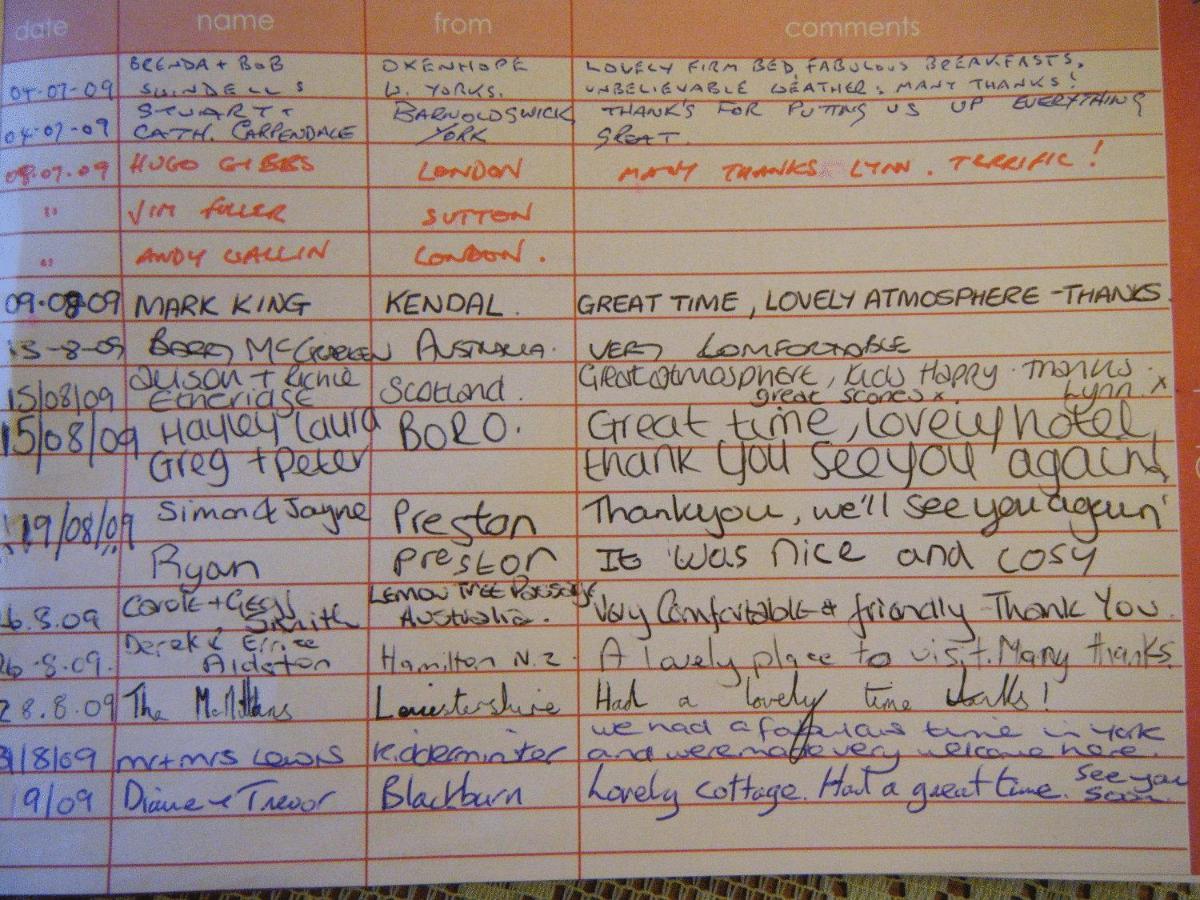 date name from comments
BRENDA + BOB OXENHOPE LOVELY FIRM BED, FABULOUS BREAKFASTS,
04-07-09 SWINDELLS W. YORKS. UNBELIEVABLE WEATHER, MANY THANKS!
STUART + BARNOLDSWICK THANK'S FOR PUTTING US UP EVERYTHING
04-07-09 CATH. CARPENDALE YORK GREAT.
08.07.09 HUGO GIBBS LONDON MANY THANKS LYNN. TERRIFIC!
" JIM FULLER SUTTON
" ANDY WALLIN LONDON.
09.08.09 MARK KING KENDAL. GREAT TIME, LOVELY ATMOSPHERE - THANKS
13-8-09 BARRY MCCRACKEN AUSTRALIA. VERY COMFORTABLE
Alison + Richie Scotland. Great atmosphere, kids Happy. Thanks
15/08/09 Etheridge great scones x. Lynn. x
15/08/09 Hayley Laura BORO. Great time, lovely hotel,
Greg + Peter thank you see you again!
19/08/09 Simon & Jayne Preston Thankyou, we'll see you again'
Ryan Preston It was nice and cosy
Carole + Smith LEMON TREE PASSAGE
26.8.09 Australia. Very Comfortable & friendly Thank You.
Derek &
26.8.09. Aldston Hamilton N.Z. A lovely place to visit. Many thanks.
28.8.09 The McMillans Leicestershire Had a lovely time thanks!
we had a fabulous time in York
31/8/09 mr + mrs Lewis Kidderminster and were made very welcome here.
9/09 Diane & Trevor Blackburn Lovely cottage. Had a great time. See you
soon.